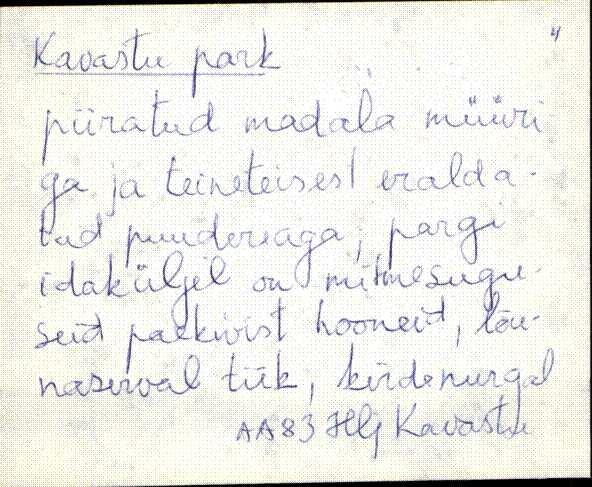 4
Kavastu park
piiratud madala müüri
ga ja teineteisest eralda-
tud puudereaga, pargi
idaküljel on mitmesugu-
seid paekivist hooneid, lõu-
naserval tiik, kirdenurgal
AA83 Hlj Kavastu